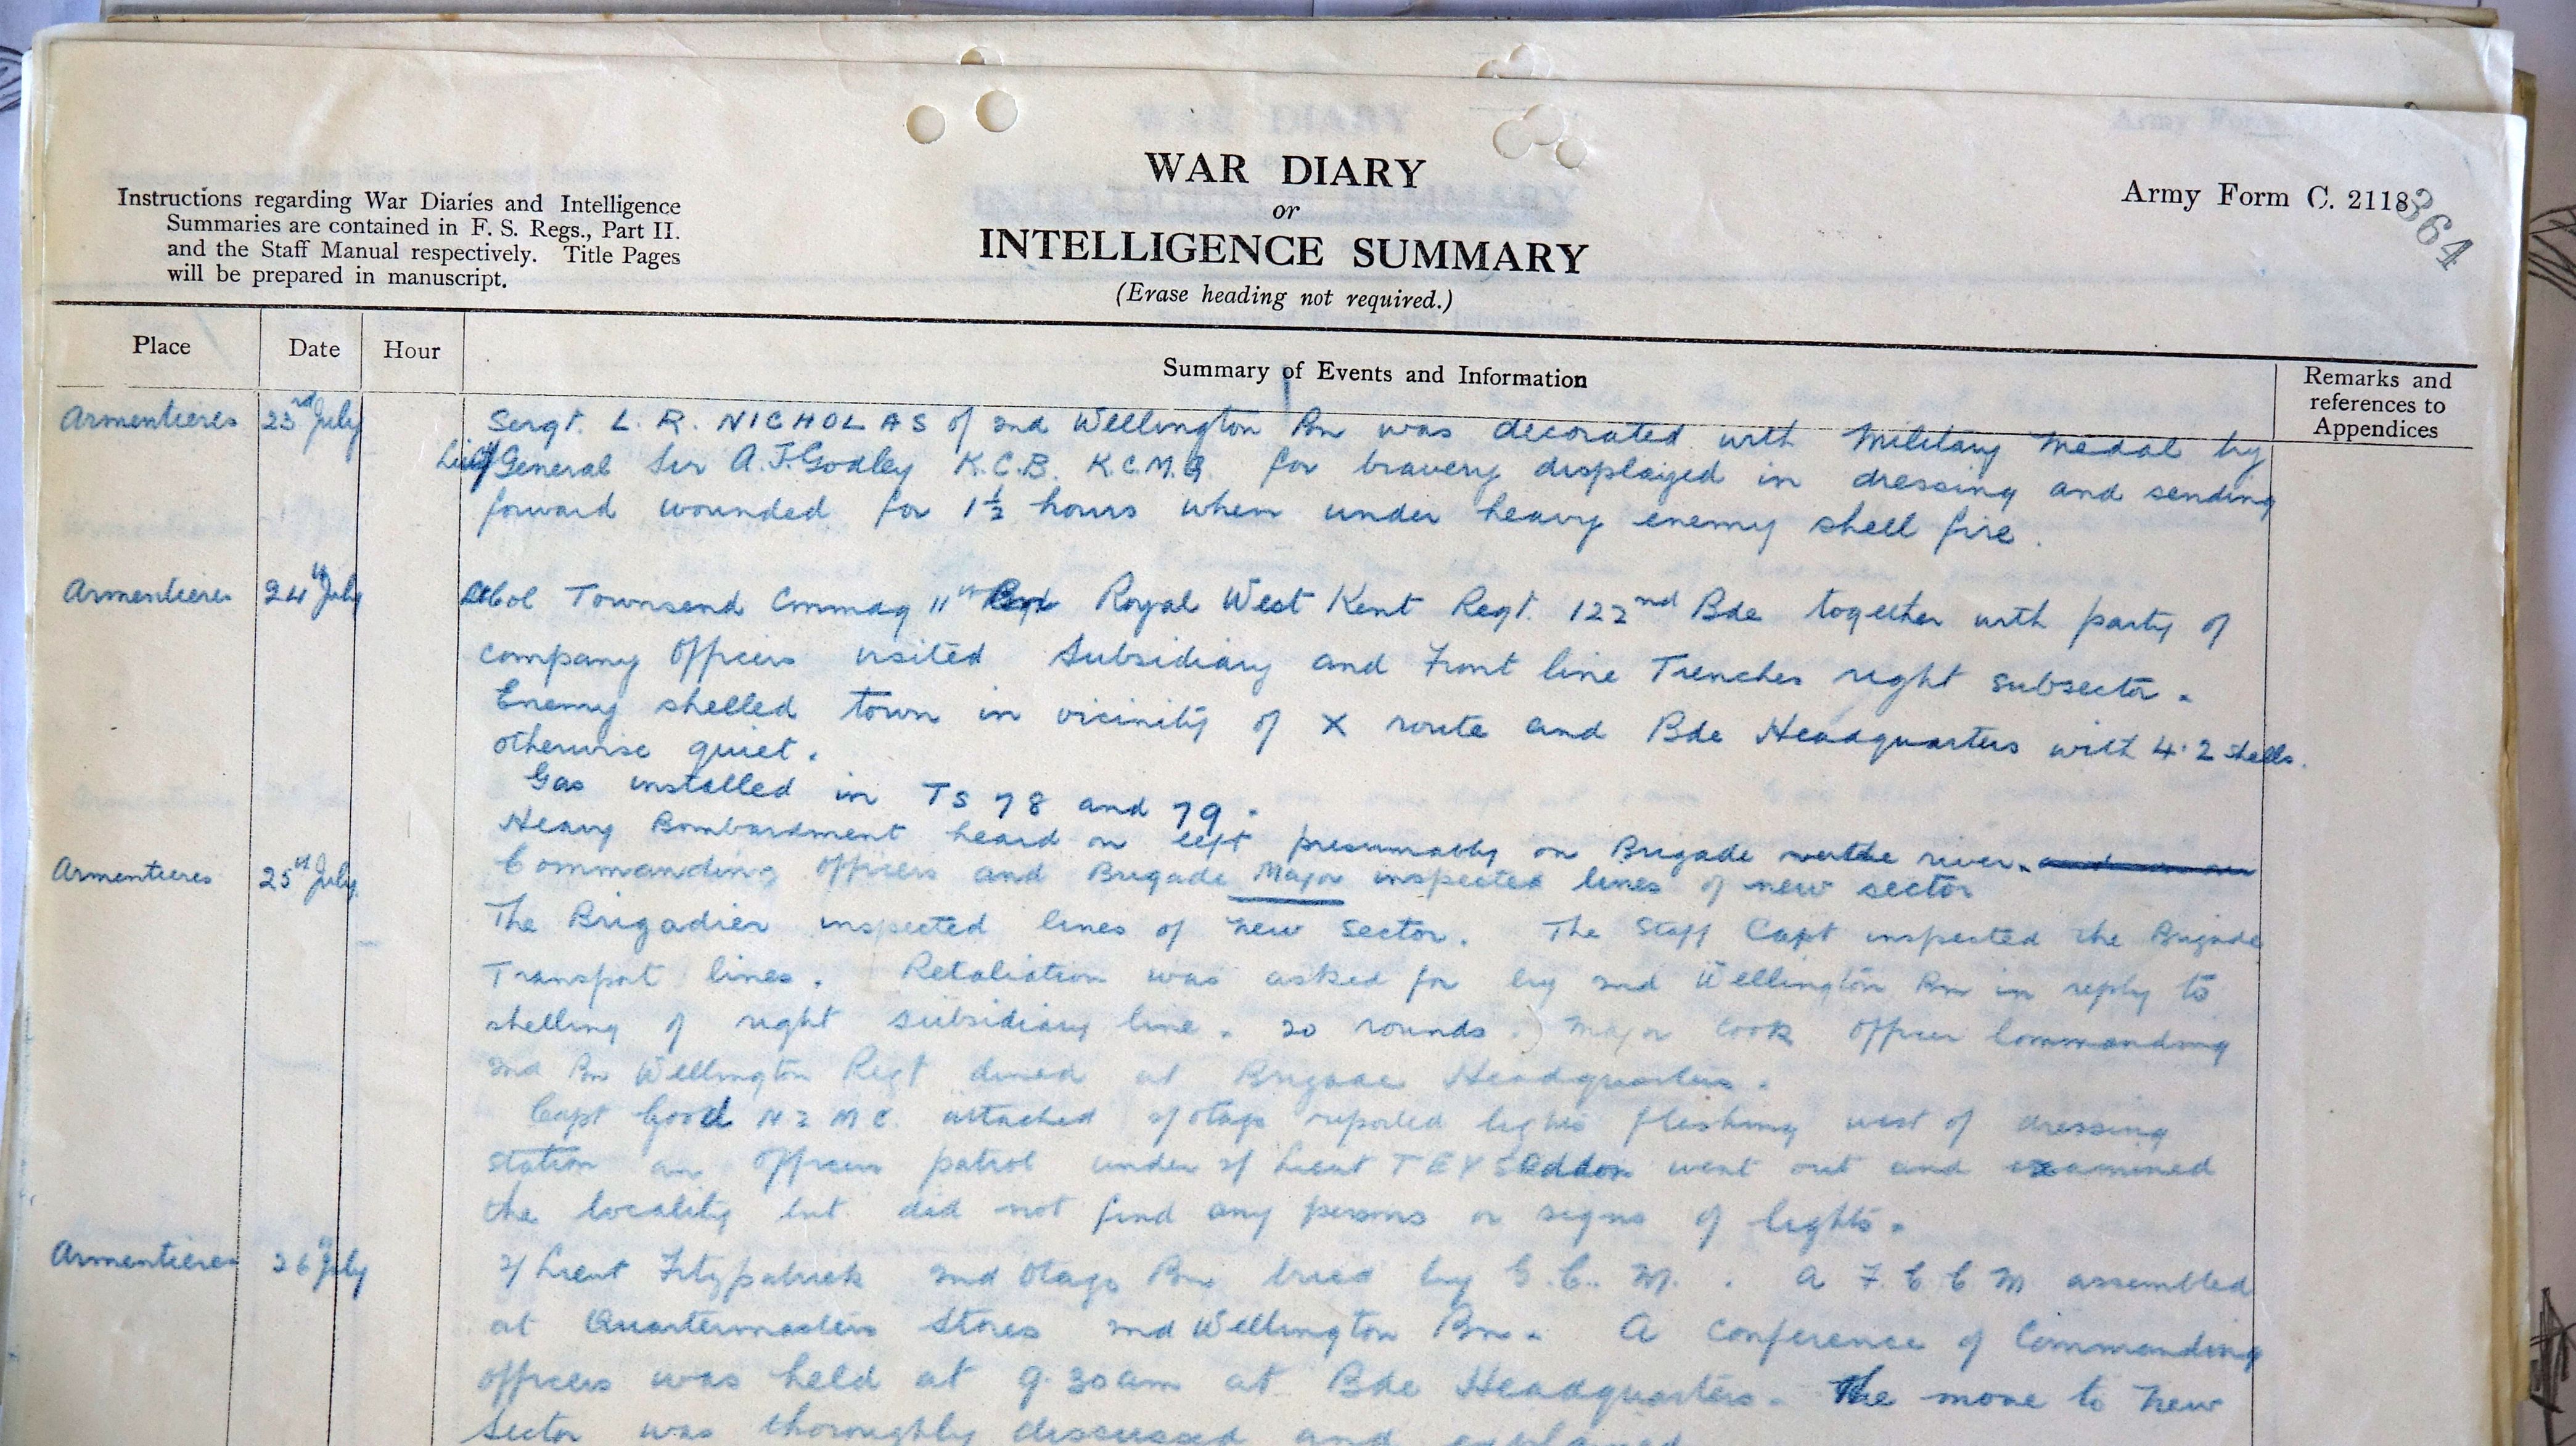 WAR DIARY
or
INTELLIGENCE SUMMARY
(Erase heading not required.)
Army Form C. 2118
364
Instructions regarding War Diaries and Intelligence
Summaries are contained in F. S. Regs., Part II.
and the Staff Manual respectively. Title Pages
will be prepared in manuscript.
Place
Date
Hour
Summary of Events and Information
Remarks and
references to
Appendices
Armentieres 23rd July Sergt. L. R. NICHOLAS of 2nd Wellington Bn was decorated with Military Medal by
Lieut General Sir A.J. Godley K.C.B. K.C.M.G. for bravery displayed in dressing and sending
forward wounded for 1½ hours when under heavy enemy shell fire.
Armentieres 24th July Col Townsend Commdg 11th Royal West Kent Regt. 122nd Bde together with party of
company Officers visited Subsidiary and Front line Trenches right subsector.
Enemy shelled town in vicinity of X route and Bde Headquarters with 4.2 shells.
otherwise quiet.
Gas installed in TS 78 and 79.
Heavy Bombardment heard on left presumably on Brigade river.
Armentieres 25th July Commanding officers and Brigade Major inspected lines of new sector
The Brigadier inspected lines of new sector. The Staff Capt inspected the Brigade
Transport lines. Retaliation was asked for by 2nd Wellington Bn in reply to
shelling of right subsidiary line. 20 rounds.) Major Cook Officer Commanding
2nd Bn Wellington Regt dined at Brigade Headquarters.
Capt Good N Z M C. attached 2/Otago reported lights flashing west of dressing
station an Officers patrol under 2/ Lieut T E Y Seddon went out and examined
the locality but did not find any persons or signs of lights.
Armentieres 26th July 2/ Lieut Fitzpatrick 2nd Otago Bn tried by G.C.M. . A F.G C M assembled
at Quartermasters Stores 2nd Wellington Bn. A conference of Commanding
officers was held at 9.30am at Bde Headquarters. The move to new
sector was thoroughly discussed and explained